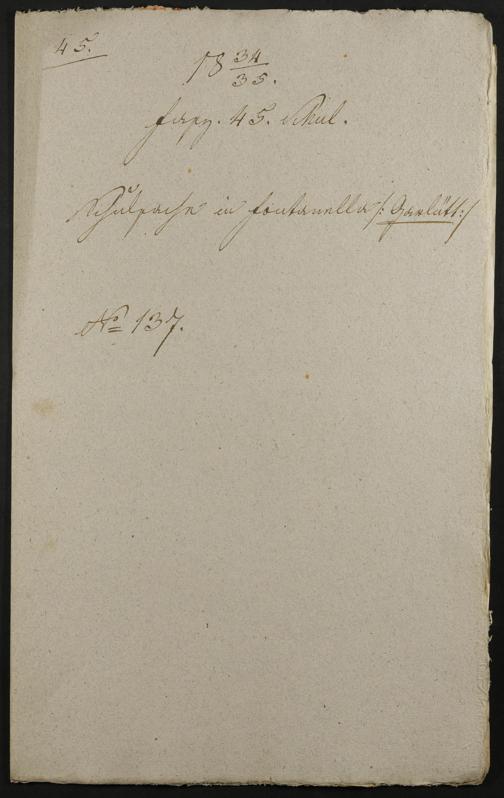 45.
18 34/35.
Fasz. 45. Schul.
Schulsache in Fontanella /: Garlütt :/
No 137.